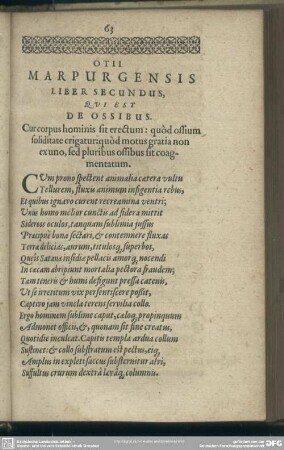 63
OTII
MARPURGENSIS
LIBER SECUNDUS,
QVI EST
DE OSSIBUS.
Cur corpus hominis sit erectum: quòd ossium
soliditate erigatur: quòd motus gratia non
ex uno, sed pluribus ossibus sit coag-
mentatum.
CVm prono spectent animalia cætera vultu
Tellurem, fluxis animum infigentia rebus,
Et quibus ignaro curent recreamina ventri;
Vnus homo melior cunctis ad sidera mittit
Sidereos oculos, tanquam sublimia jussus
Præcipuè bona sectari, & contemnere fluxas
Terræ delicias, aurum, titulosq́ superbos,
Queis Satana insidiæ pellacis amorq́, nocendi
In cæcam abripiunt mortalia pectora fraudem;
Tam teneris & humi defigunt pressa catenis,
Vt se irretitum vix persentiscere possit,
Captivo jam vincla terens servilia collo.
Ergo hominem sublime caput, cæloq́, propinquum
Admonet officii, &, quonam sit fine creatus,
Quotidie inculcat. Capitis templa ardua collum
Sustinet: & collo substratum est pectus, eiq́,
Amplius in expleti saccus substernitur alvi,
Suffultus crurum dextrâ lævâq́, columnis.